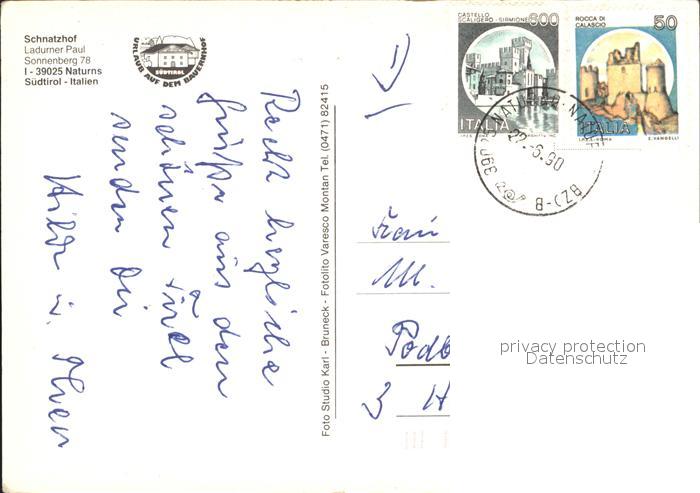 Schnatzhof
Ladurner Paul
Sonnenberg 78
I - 39025 Naturns
Südtirol - Italien
URLAUB AUF DEM BAUERNHOF
SÜDTIROL
Recht herzliche
Grüße aus dem
schönen Tirol
senden Dir
Hilde u.
Foto Studio Karl - Bruneck - Fotolito Varesco Montan Tel. (0471) 82415
CASTELLO
SCALIGERO - SIRMIONE
600
ITALIA
ROCCA DI
CALASCIO
50
ITALIA
I.P.Z.S. ROMA
E. VANGELLI
6.90
(BZ)-B
Frau
M.
3 H
privacy protection
Datenschutz